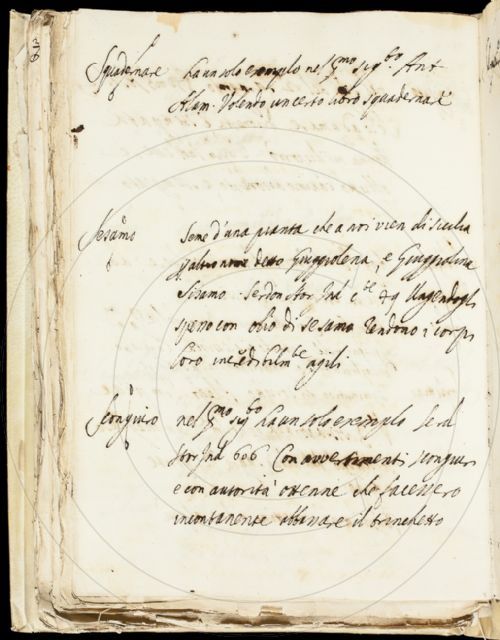 Squadernare ha un solo exemplo nel p.mo sig.to Ant
Alam. Volendo un certo libro squadernare
Sesamo Seme d'una pianta che a noi vien di Sicilia
p altro nome detto Giuggiolena, e Giuggiolina
Sisamo. Serdon. stor. Ind. ungendogli
spesso con olio di sesamo rendono i corpi
loro incredibilm.te agili
Scongiuro nel p.mo sig.to ha un solo exemplo Serd.
stor. Ind. 606 Con avvertimenti scongiuri
e con autorità ottenne che facessero
incontanente abbassare il trinchetto